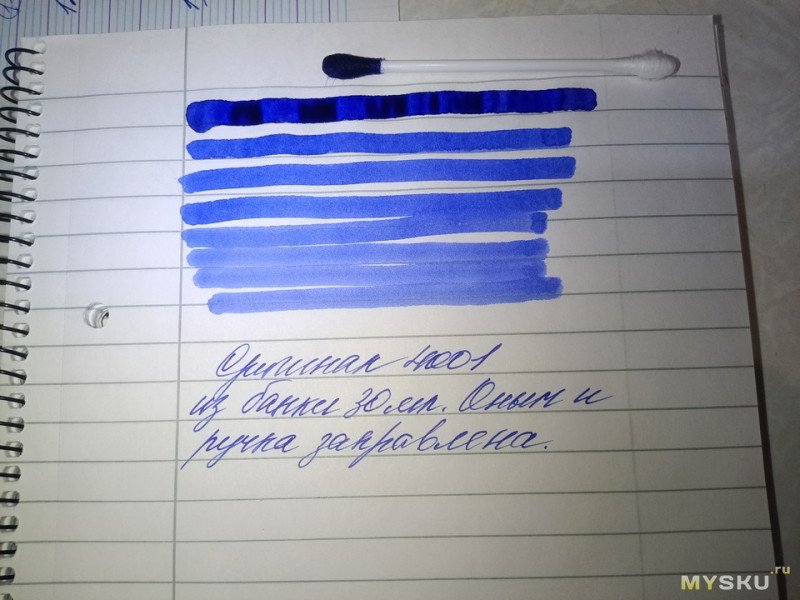 Оригинал 4001
из банки 30 мл. Оным и
ручка заправлена.
MYSKU.ru